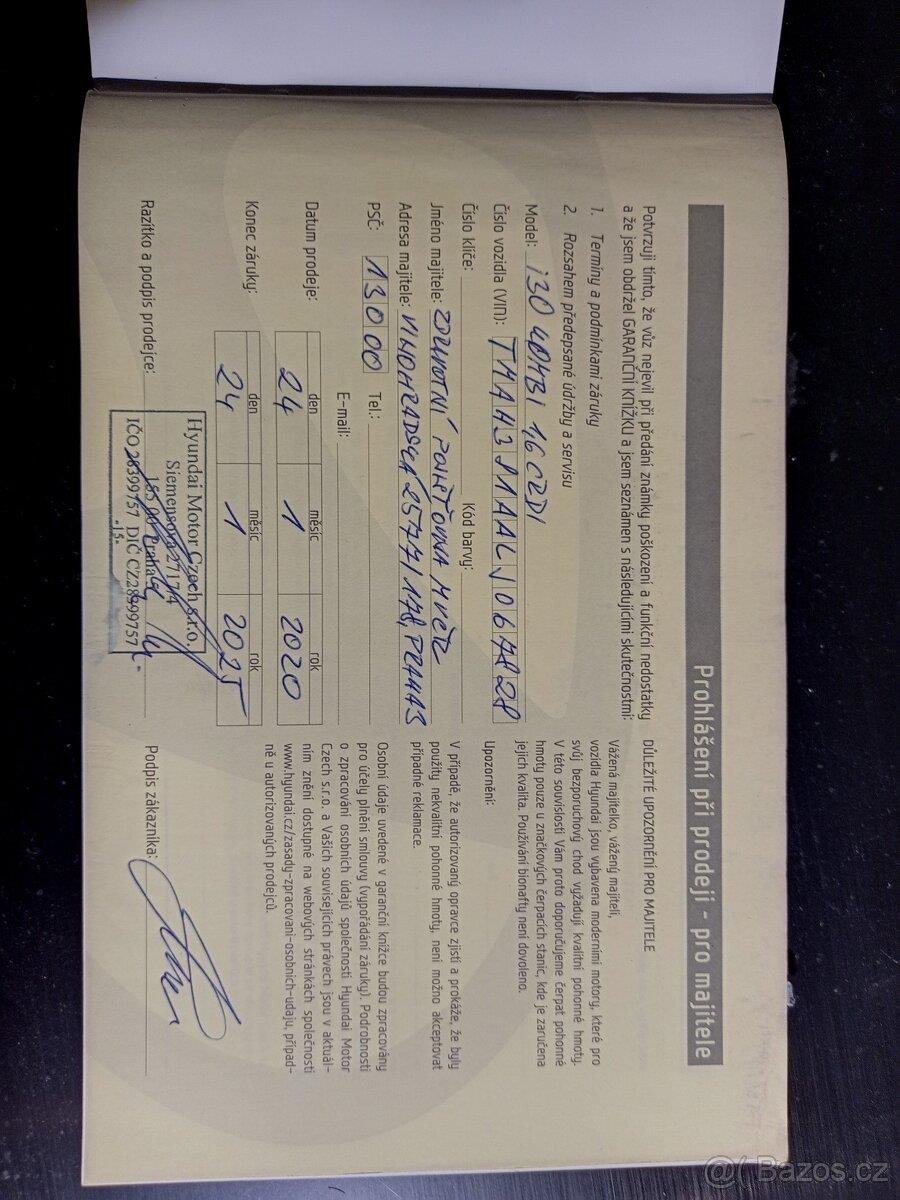 Prohlášení při prodeji - pro majitele
Potvrzuji tímto, že vůz nejevil při předání známky poškození a funkční nedostatky
a že jsem obdržel GARANČNÍ KNÍŽKU a jsem seznámen s následujícími skutečnostmi:
1. Termíny a podmínkami záruky
2. Rozsahem předepsané údržby a servisu
Model: i30 4DHB1 1,6 CRDI
Číslo vozidla (VIN):
Číslo klíče: Kód barvy:
Jméno majitele: ZDRAVOTNÍ POJIŠŤOVNA MVČR
Adresa majitele: VINOHRADSKÁ 2577/178, PRAHA 3
PSČ: 13000 Tel.:
E-mail:
den měsíc rok
Datum prodeje: 24 1 2020
den měsíc rok
Konec záruky: 24 1 2025
Razítko a podpis prodejce:
Hyundai Motor Czech s.r.o.
Siemensova 2717/4
155 00 Praha
IČO 28399757 DIČ CZ28399757
-15-
DŮLEŽITÉ UPOZORNĚNÍ PRO MAJITELE
Vážená majitelko, vážený majiteli,
vozidla Hyundai jsou vybavena moderními motory, které pro
svůj bezporuchový chod vyžadují kvalitní pohonné hmoty.
V této souvislosti Vám proto doporučujeme čerpat pohonné
hmoty pouze u značkových čerpacích stanic, kde je zaručena
jejich kvalita. Používání bionafty není dovoleno.
Upozornění:
V případě, že autorizovaný opravce zjistí a prokáže, že byly
použity nekvalitní pohonné hmoty, není možno akceptovat
případné reklamace.
Osobní údaje uvedené v garanční knížce budou zpracovány
pro účely plnění smlouvy (vypořádání záruky). Podrobnosti
o zpracování osobních údajů společností Hyundai Motor
Czech s.r.o. a Vašich souvisejících právech jsou v aktuál-
ním znění dostupné na webových stránkách společnosti
www.hyundai.cz/zasady-zpracovani-osobnich-udaju, případ-
ně u autorizovaných prodejců.
Podpis zákazníka:
@ Bazos.cz